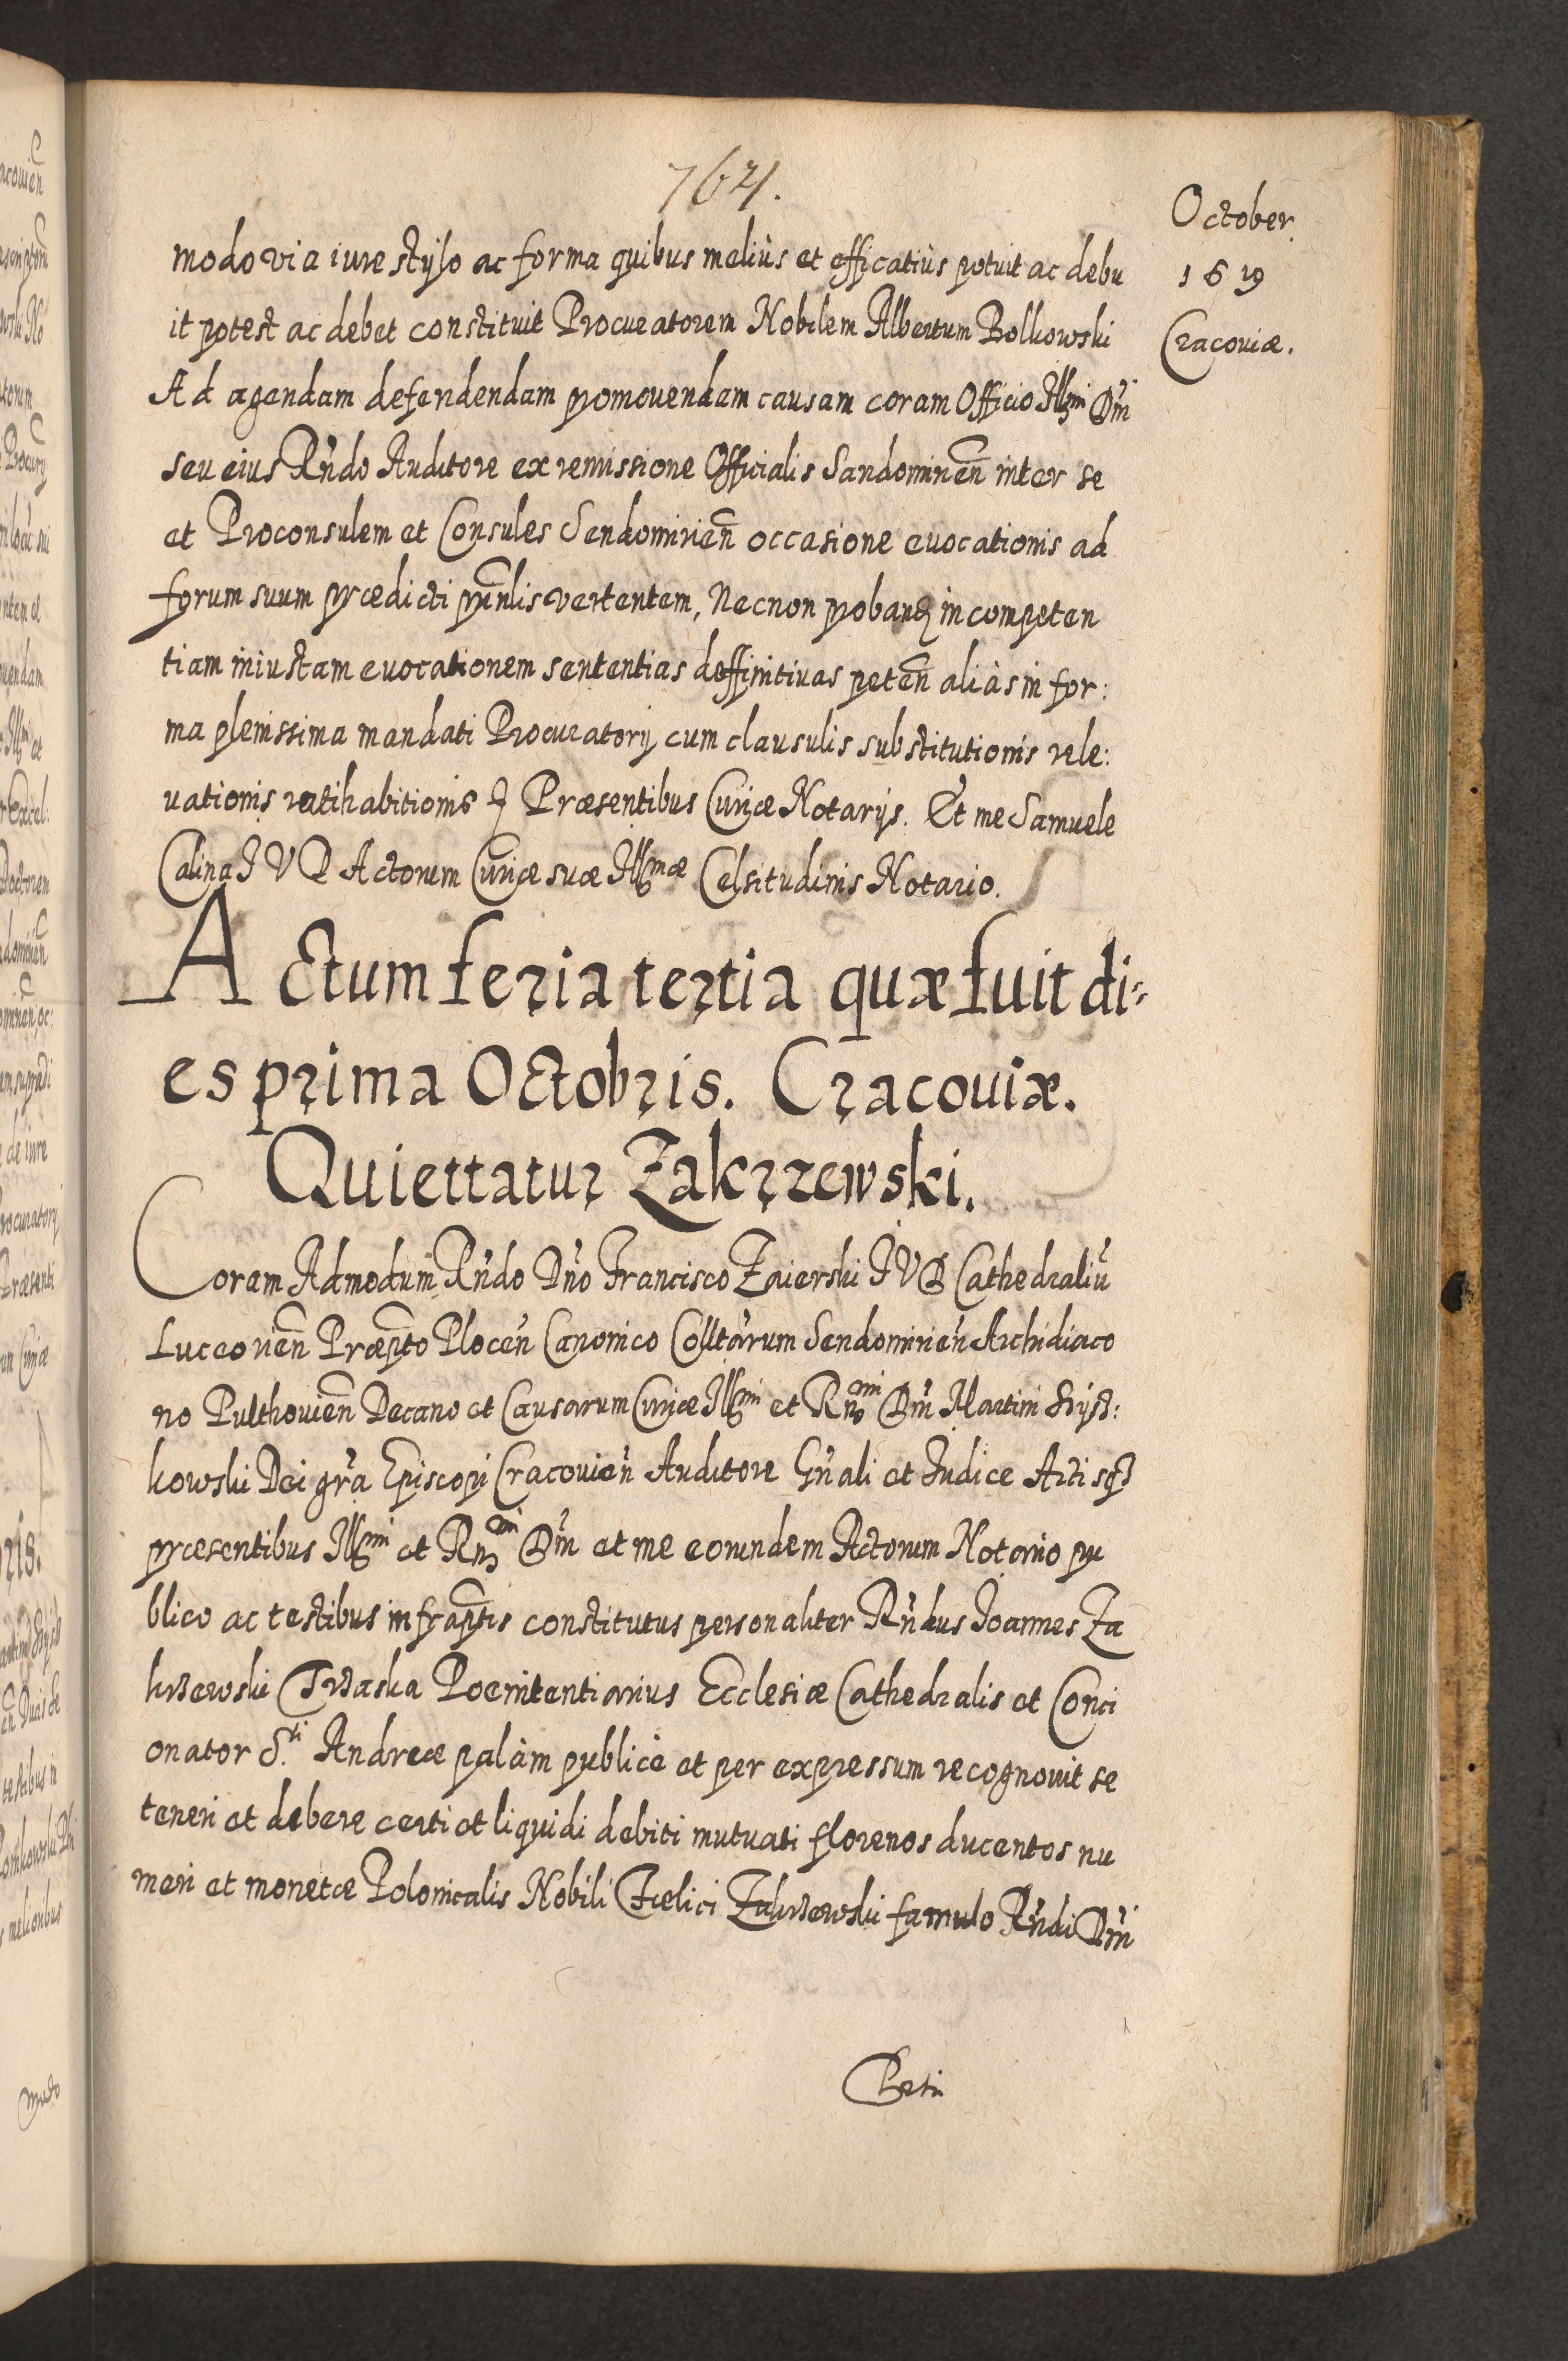 7621.
October.
1619
Cracoviæ.
modo via iure stylo ac forma quibus meliùs et efficatiùs potuit ac debu
it potest ac debet constituit Procuratorem Nobilem Albertum Bolkowski
Ad agendam defendendam promovendam causam coram Officio Illmi Dni
seu eius Rndo Auditore ex remissione Officialis Sandomiren inter se
et Proconsulem et Consules Sendomirien occasione evocationis ad
forum suum prædicti prinlis vertentem, Necnon proband in competen
tiam iniustam evocationem sententias deffinitivas peten aliàs in for:
ma plenissima mandati Procuratorij cum clausulis substitutionis rele:
vationis ratihabitionis Præsentibus Curiæ Notarijs. Et me Samuele
Calina I V D Actorum Curiæ suæ Illmæ Celsitudinis Notario.
Actum feria tertia quæ fuit di=
es prima Octobris. Cracoviæ.
Quiettatur Zakrzewski.
Coram Admodum Rndo Dno Francisco Zaierski I V D Cathedraliu
Luceorien Præpto Plocen Canonico Colltarum Sendomirien Archidiaco
no Pulthovien Decano et Causarum Curiæ Illmi et Rmi Dni Martini Szysz:
kowski Dei gra Episcopi Cracovien Auditore Gnali et Iudice Actisq
præsentibus Illmi et Rmi Dni et me eorundem Actorum Notario pu
blico ac testibus infraptis constitutus personaliter Rndus Ioannes Za
krzewski Trzaska Poenitentiarius Ecclesiæ Cathedralis et Conci
onator S.ti Andreæ palàm publicè et per expressum recognovit se
teneri et debere certi et liquidi debiti mutuati florenos ducentos nu
meri et monetæ Polonicalis Nobili Fælici Zakrzewski famulo Rndi Dni
Petri